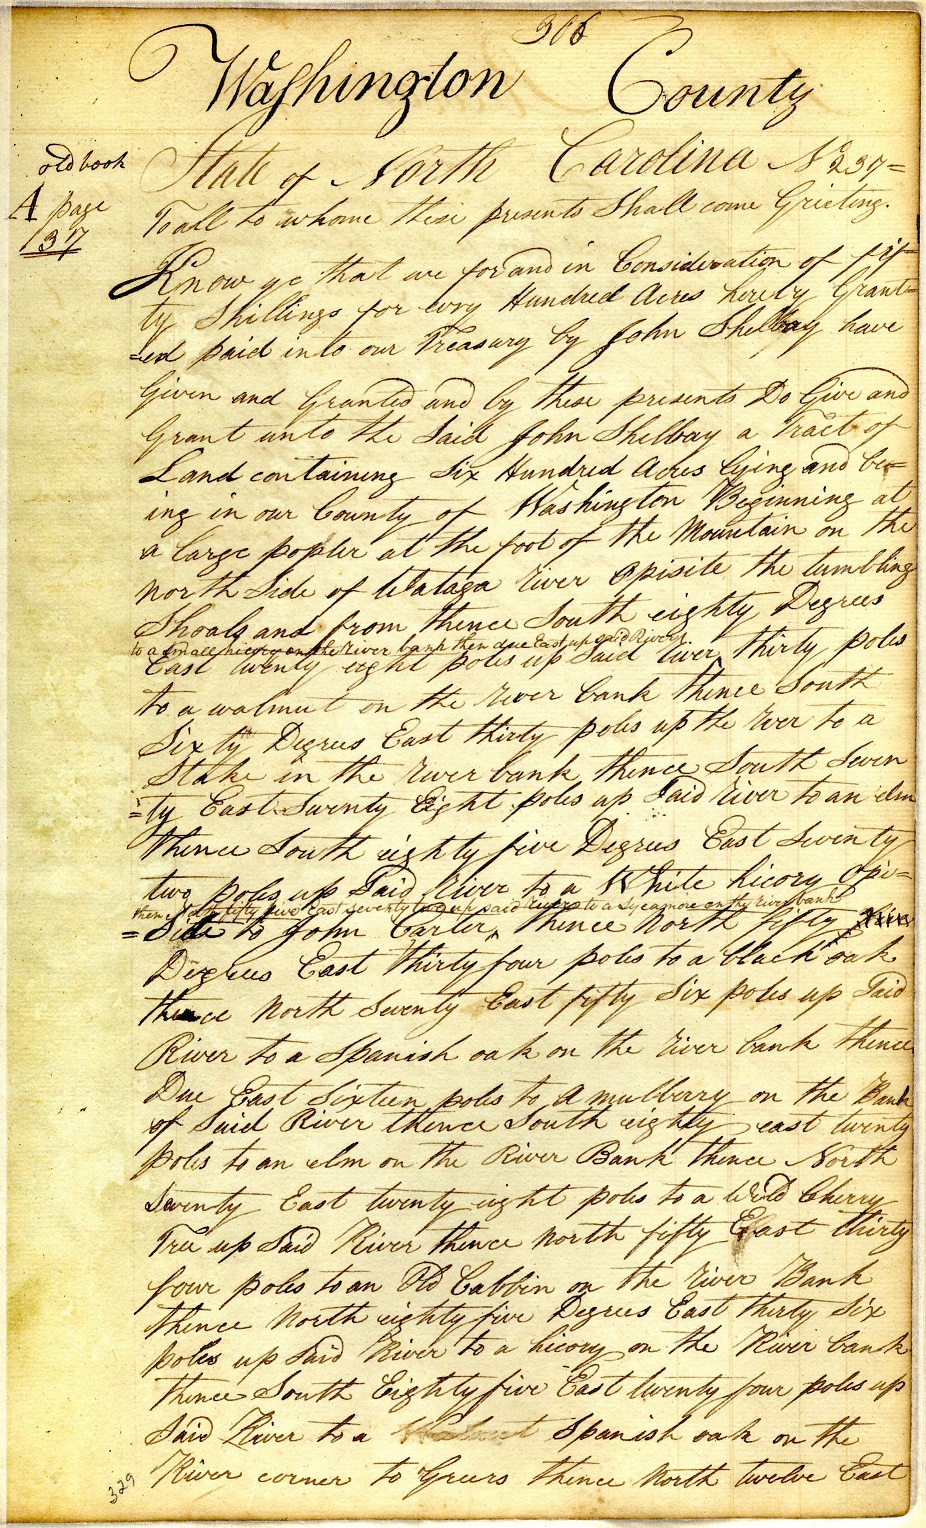 306
Washington County
old book
A page
37
State of North Carolina No 239=
To all to whome these presents Shall come Grieting.
Know ye that we for and in Consideration of fif=
ty Shillings for evry Hundred Acres hereby Grant=
=ed paid into our Treasury by John Shelbay have
Given and Granted and by these presents Do Give and
Grant unto the Said John Shelbay a Tract of
Land containing Six Hundred Acres lying and be=
ing in our County of Washington Beginning at
a large popler at the foot of the Mountain on the
North Side of Wataga river Opisite the tumbling
Shoals and from thence South eighty Degrees
to a small hicory on the River bank then due East up said River
East twenty eight poles up Said river, thirty poles
to a walnut on the river bank thence South
Sixty Degrees East thirty poles up the rver to a
Stake in the river bank thence South Seven
=ty East Twenty Eight poles up Said river to an elm
thence South eighty five Degrees East Seventy
two poles up Said River to a White hicory Opi=
thence North fifty five East seventy two up said River to a Sycamore on the river bank
=Site to John Carter, thence North fifty
Degrees East thirty four poles to a black oak
thence North Seventy East fifty Six poles up Said
River to a Spanish oak on the river bank thence
Due East Sixteen poles to a mulberry on the Bank
of Said River thence South eighty east twenty
poles to an elm on the River Bank thence North
Seventy East twenty eight poles to a Wild Cherry
Tree up Said River thence North fifty East thirty
four poles to an Old Cabbin on the river Bank
thence North eighty five Degrees East thirty Six
poles up Said River to a hicory on the River bank
thence South Eighty five East twenty four poles up
Said River to a Spanish oak on the
River corner to Greers thence North twelve East
329